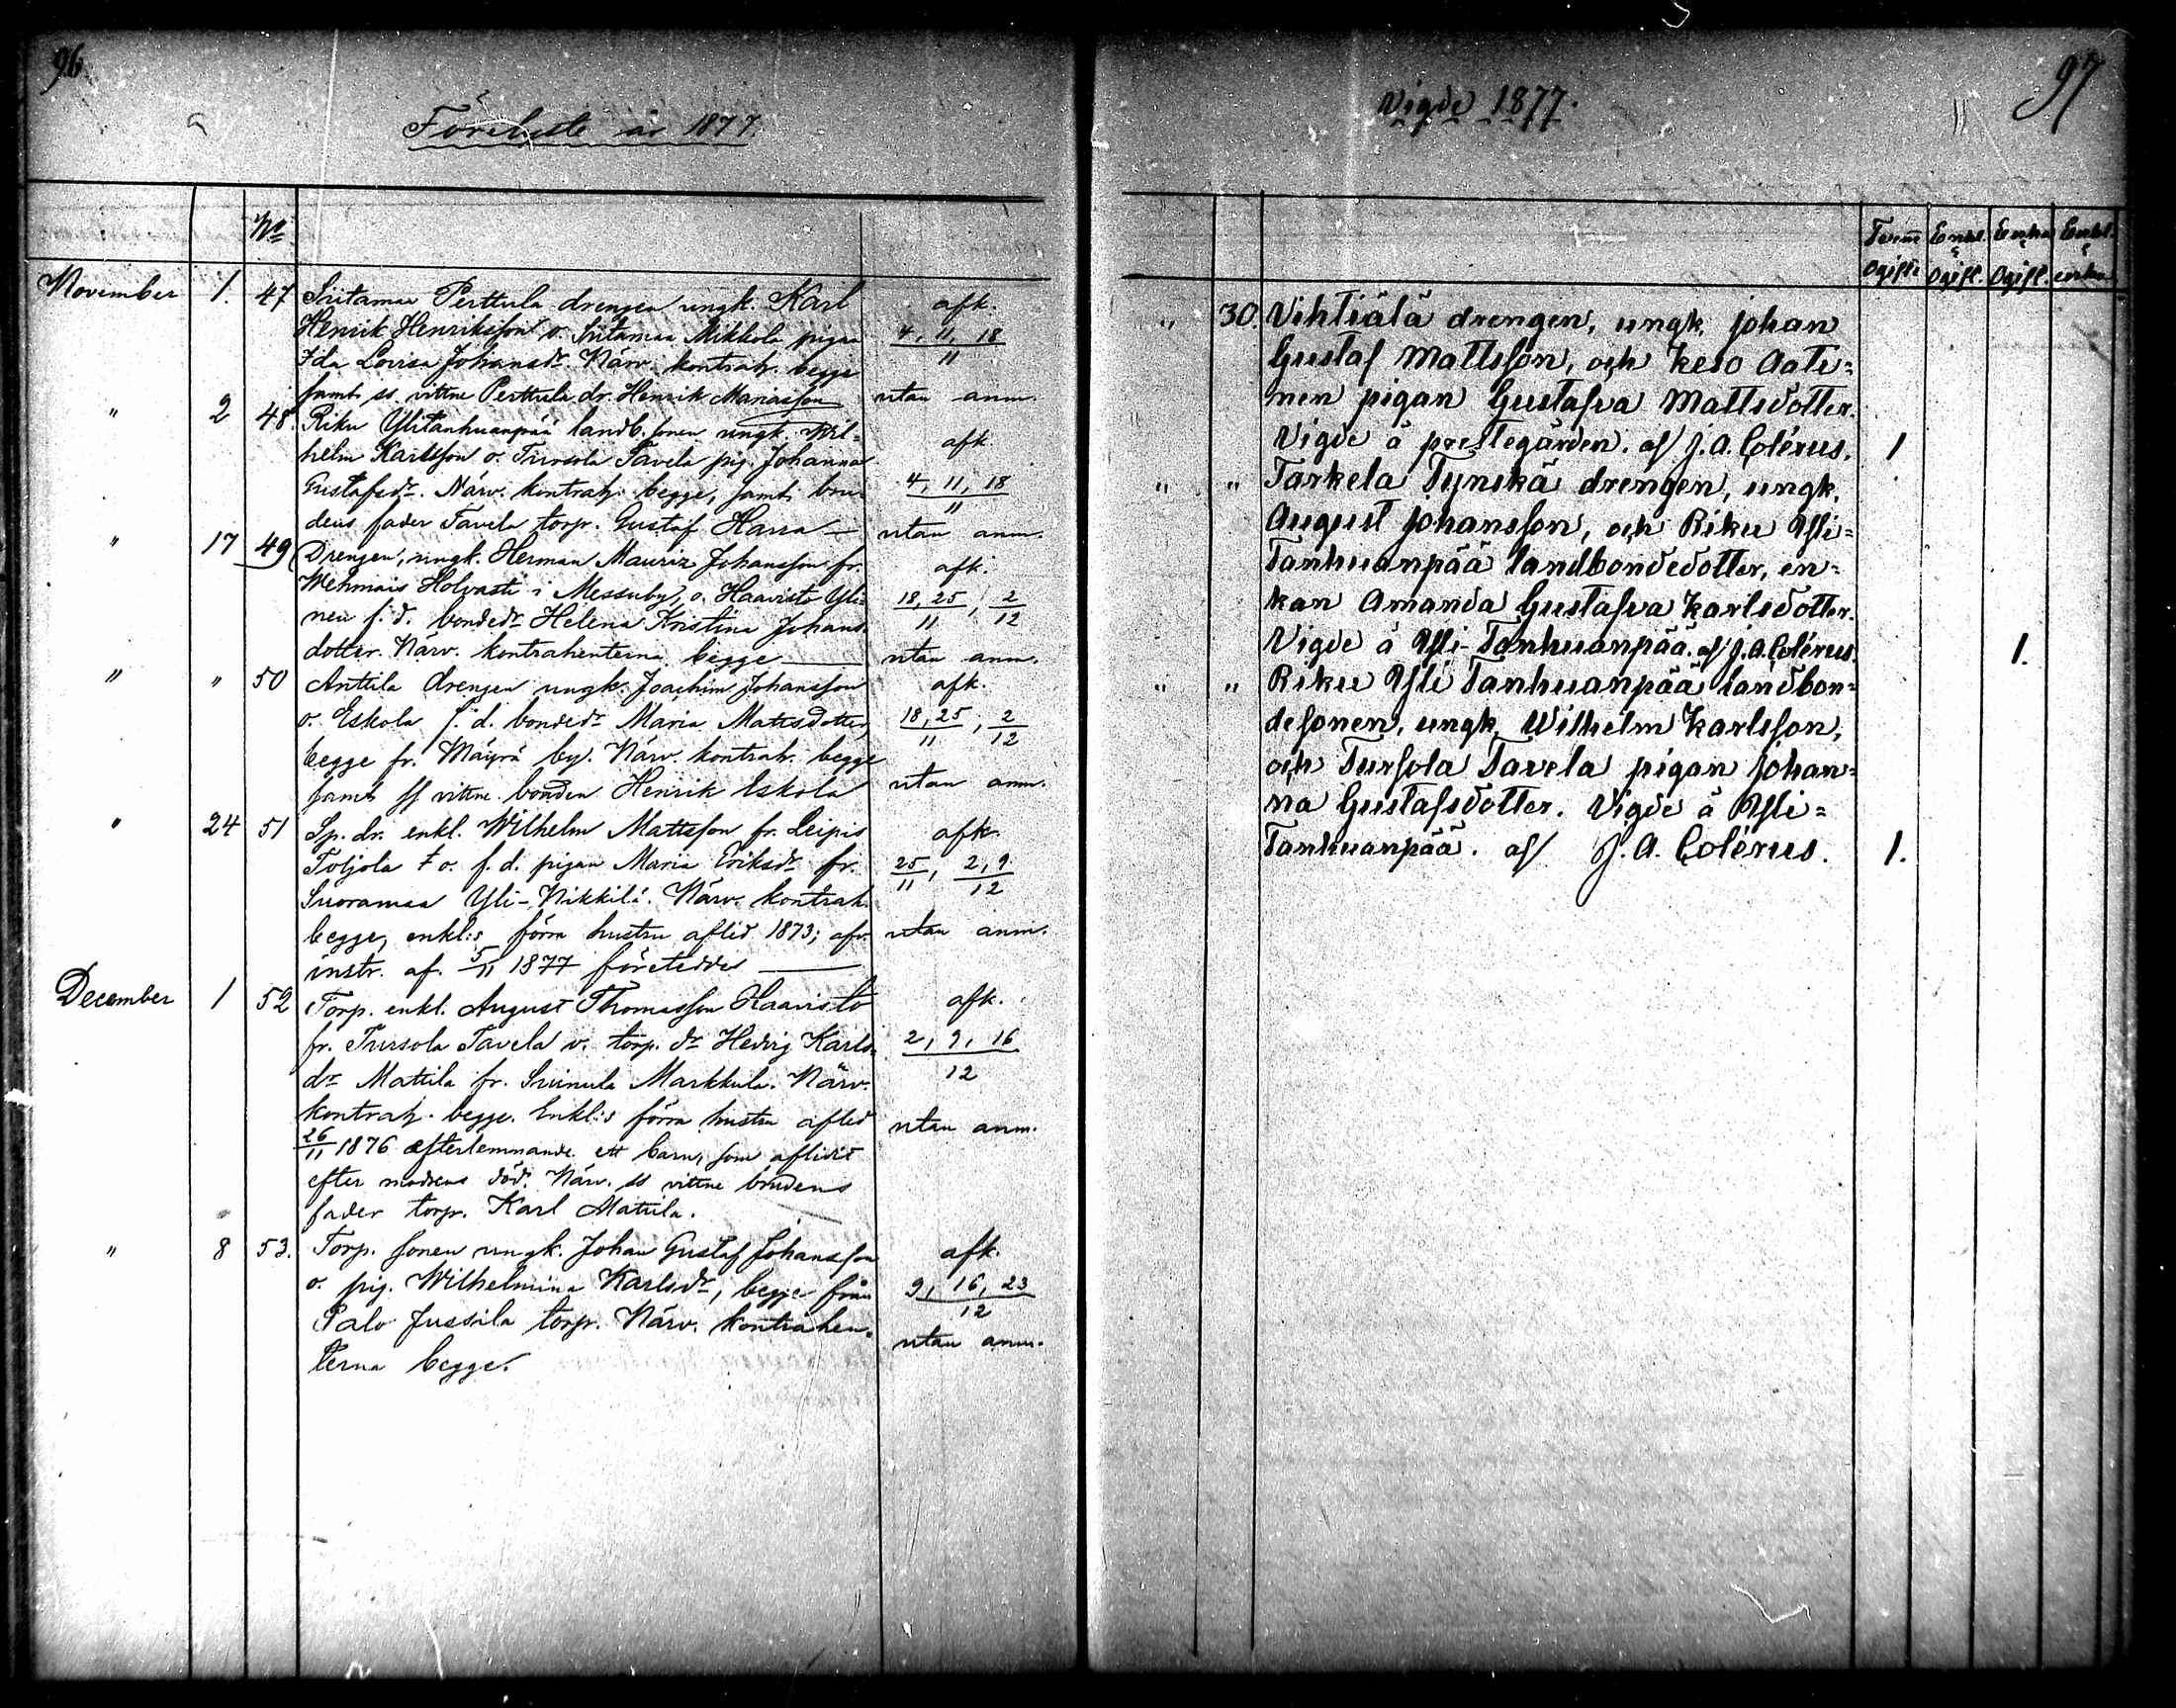 96
Förelyste år 1877.
No
November 1. 47 Siitamaa Perttula drengen ungk. Karl afk.
Henrik Henriksson o. Siitamaa Mikkola pigan 4, 11, 18
Ida Lovisa Johansdr. Närv. kontrah. begge 11
samt ss. vittne Perttula dr. Henrik Mariasson utan anm.
" 2 48. Riku Ylitanhuanpää landb. sonen ungk. Wil=
helm Karlsson o. Tursola Tavela pig. Johanna afk.
Gustafsdr. Närv. kontrah. begge, samt bru= 4, 11, 18
11
dens fader Tavela torp. Gustaf Harra — utan anm.
" 17 49 Drengen, ungk. Herman Mauriz Johansson fr. afk.
Wehmais Holvasti i Messuby, o. Haavisto Yli= 18, 25, 2
nen f. d. bondedr Helena Kristina Johans= 11 12
dotter. Närv. kontrahenterna begge — utan anm.
" " 50 Anttila drengen ungk. Joachim Johansson afk.
o. Eskola f. d. bondedr Maria Mattsdotter, 18, 25, 2
begge fr. Mäyrä by. Närv. kontrah. begge 11 12
samt ss vittne bonden Henrik Eskola utan anm.
" 24 51 Sp. dr. enkl. Wilhelm Mattsson fr. Leipis afk.
Toljola o. f. d. pigan Maria Eriksdr fr. 25, 2, 9
Suoramaa Yli-Nikkilä. Närv. kontrah. 11 12
begge, enkl:s förra hustru aflid 1873; afv. utan anm.
instr. af. 5/11 1877 företeddes —
December 1 52 Torp. enkl. August Thomasson Haavisto afk.
fr. Tursola Tavela o. torp. dr Hedvig Karls= 2, 9, 16
dr Mattila fr. Suinula Markkula. Närv. 12
kontrah. begge. Enkl:s förra hustru aflid utan anm.
26/11 1876 efterlemnande ett barn, som aflidit
efter modrens död. Närv. ss vittne brudens
fader torp. Karl Mattila.
" 8 53. Torp. sonen ungk. Johan Gustaf Johansson afk.
o. pig. Wilhelmina Karlsdr, begge från 9, 16, 23
Palo Jussila torp. Närv. kontrahen= 12
terna begge. utan anm.
97
Vigde 1877.
Tvenne Enkl. Enka Enkl.
o o o
Ogifte Ogift. Ogift. enka
" 30. Vihtiälä drengen, ungk. Johan
Gustaf Mattsson, och Keso Aate=
nen pigan Gustafva Mattsdotter.
Vigde å prestegården. af J. A. Colérus. 1
" " Tarkela Tynskä drengen, ungk.
August Johansson, och Riku Yli=
Tanhuanpää landbondedotter, en=
kan Amanda Gustafva Karlsdotter.
Vigde å Yli-Tanhuanpää. af J. A. Colérus. 1.
" " Riku Yli Tanhuanpää landbon=
desonen, ungk. Wilhelm Karlsson,
och Tursola Tavela pigan Johan=
na Gustafsdotter. Vigde å Yli=
Tanhuanpää. af J. A. Colérus. 1.